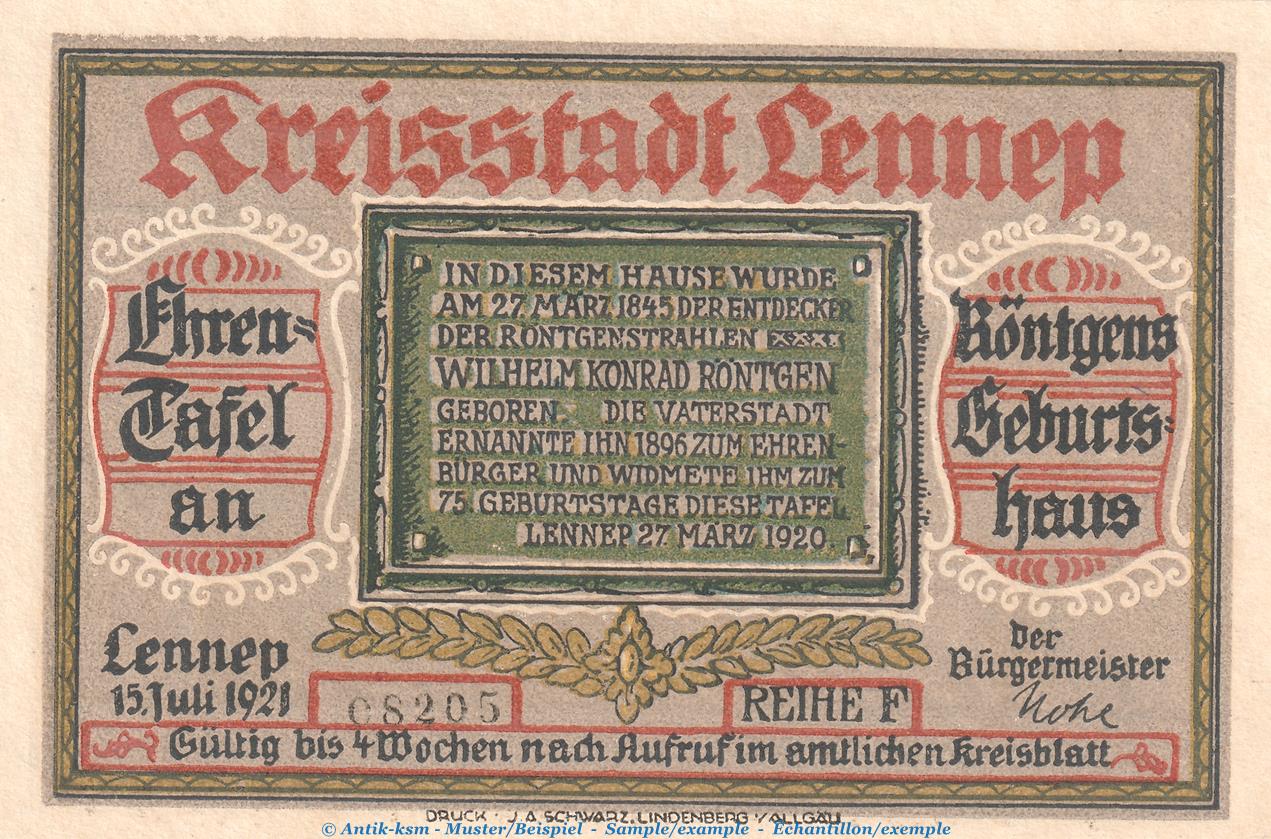 Kreisstadt Lennep
Ehren=
Tafel
an
IN DIESEM HAUSE WURDE
AM 27. MÄRZ 1845 DER ENTDECKER
DER RÖNTGENSTRAHLEN
WILHELM KONRAD RÖNTGEN
GEBOREN - DIE VATERSTADT
ERNANNTE IHN 1896 ZUM EHREN-
BÜRGER UND WIDMETE IHM ZUM
75. GEBURTSTAGE DIESE TAFEL
LENNEP 27 MÄRZ 1920.
Röntgens
Geburts=
haus
Lennep
15. Juli 1921
08205
REIHE F
Der
Bürgermeister
Gültig bis 4 Wochen nach Aufruf im amtlichen Kreisblatt
DRUCK · J.A. SCHWARZ. LINDENBERG I/ALLGÄU
© Antik-ksm - Muster/Beispiel - Sample/example - Echantillon/exemple